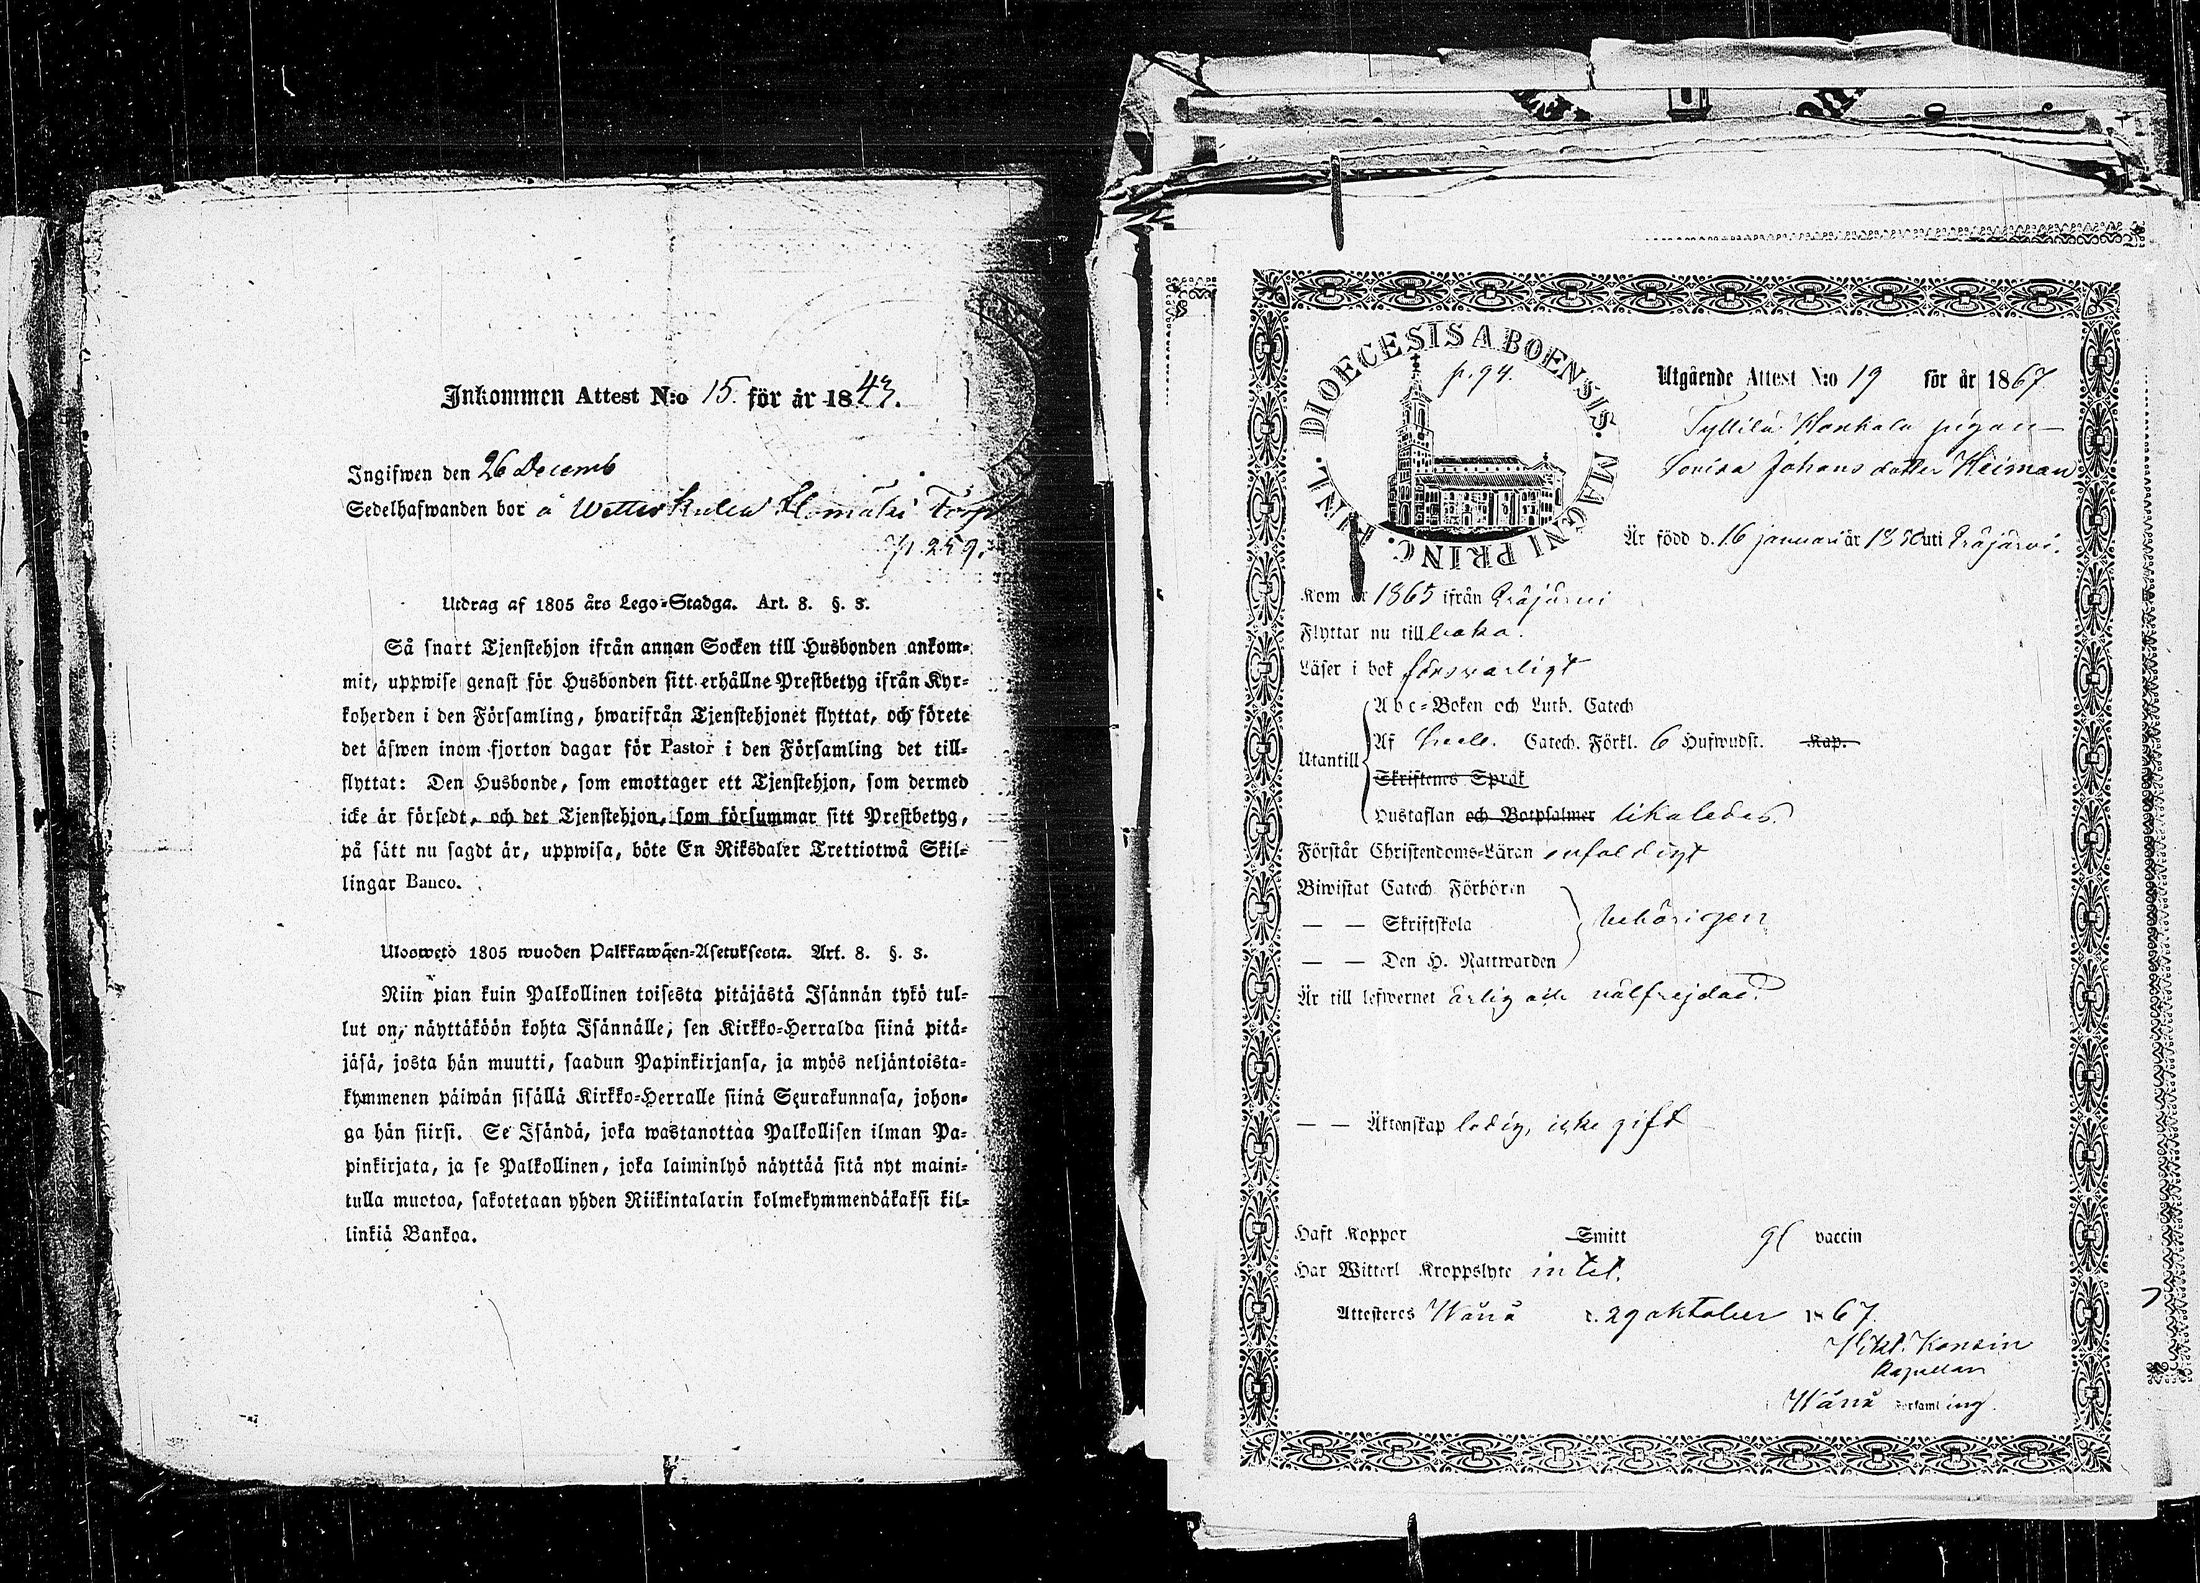 Inkommen Attest N:o 15. för år 1843.
Ingifwen den 26 Decemb
Sedelhafwanden bor å Torp
p. 259.
Utdrag af 1805 års Lego-Stadga. Art. 8. §. 3.
Så snart Tjenstehjon ifrån annan Socken till Husbonden ankom-
mit, uppwise genast för Husbonden sitt erhållne Prestbetyg ifrån Kyr-
koherden i den Församling, hwarifrån Tjenstehjonet flyttat, och förete
det äfwen inom fjorton dagar för Pastor i den Församling det till-
flyttat: Den Husbonde, som emottager ett Tjenstehjon, som dermed
icke är försedt, och det Tjenstehjon, som försummar sitt Prestbetyg,
på sätt nu sagdt är, uppwisa, böte En Riksdaler Trettiotwå Skil-
lingar Banco.
Ulosweto 1805 wuoden Palkkawäen-Asetuksesta. Art. 8. §. 3.
Niin pian kuin Palkollinen toisesta pitäjästä Isännän tykö tul-
lut on, näyttäköön kohta Isännälle, sen Kirkko-Herralda siinä pitä-
jäsä, josta hän muutti, saadun Papinkirjansa, ja myös neljäntoista-
kymmenen päiwän sisällä Kirkko-Herralle siinä Seurakunnasa, johon-
ga hän siirsi. Se Isändä, joka wastanottaa Palkollisen ilman Pa-
pinkirjata, ja se Palkollinen, joka laiminlyö näyttää sitä nyt maini-
tulla muotoa, sakotetaan yhden Riikintalarin kolmekymmendäkaksi kil-
linkiä Bankoa.
DIOECESIS ABOENSIS. MAGNI PRINC. FINL.
p. 94.
Utgående Attest N:o 19 för år 1867
Tyllilä Hankala pigan
Lovisa Johansdotter Heiman
Är född d. 16 januari år 1850 uti Kräjärvi.
Kom år 1865 ifrån Kräjärvi
Flyttar nu tillbaka.
Läser i bok försvarligt
Utantill
Abc-Boken och Luth. Catech
Af hela Catech. Förkl. 6 Hufwudst. Kap.
Skriftenes Språk
Hustaflan och Botpsalmer likaledes.
Förstår Christendoms-Läran enfaldigt
Biwistat Catech. Förhören
— — Skriftskola behörigen
— — Den H. Nattwarden
Är till lefwernet ärlig och välfrejdad.
— — Äktenskap ledig, icke gift
Haft Koppor Smitt gl vaccin
Har Witterl Kroppslyte intet.
Attesteres Wånå d. 29 oktober 1867.
Kapellan
Wånå Församling.